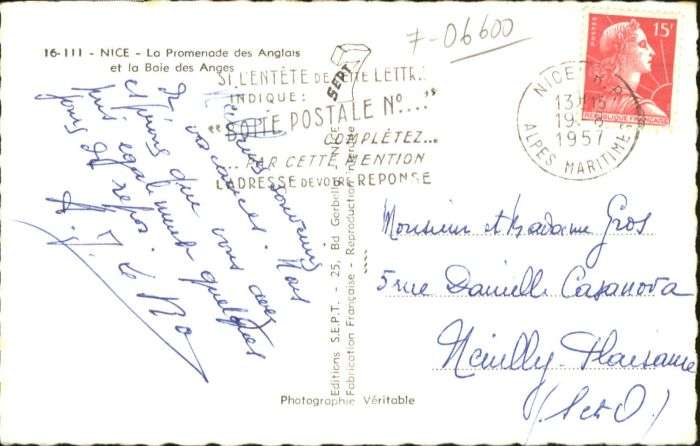 16-111 - NICE - La Promenade des Anglais
et la Baie des Anges
7-06600
SI L'ENTÊTE DE CETTE LETTRE
INDIQUE:
"BOITE POSTALE No...."
COMPLÉTEZ...
... PAR CETTE MENTION
L'ADRESSE DE VOTRE REPONSE
SEPT
POSTES 15F
RÉPUBLIQUE FRANÇAISE
NICE R.P.
13H15
19-
1957
ALPES MARITIMES
souvenirs
de vacances. Nous
espérons que vous avez
pris également quelques
jours de repos.
Editions S.E.P.T. - 25, Bd Gorbella - NICE
Fabrication Française - Reproduction interdite
Monsieur et Madame Gros
5 rue Danielle Casanova
Neuilly-Plaisance
(S et O)
Photographie Véritable